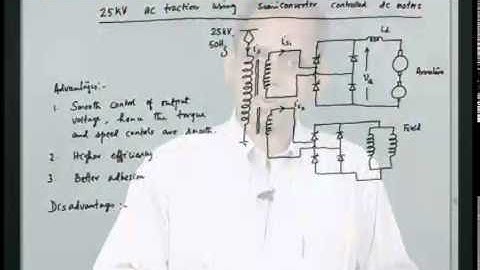 25KV AC traction using Semiconverter controlled dc motors
25KV,
50Hz
is1
Ld
Armature
Advantages:-
1. Smooth control of output
voltage, hence the torque
and speed controls are smooth.
2. Higher efficiency
3. Better adhesion
Field
Disadvantages:-